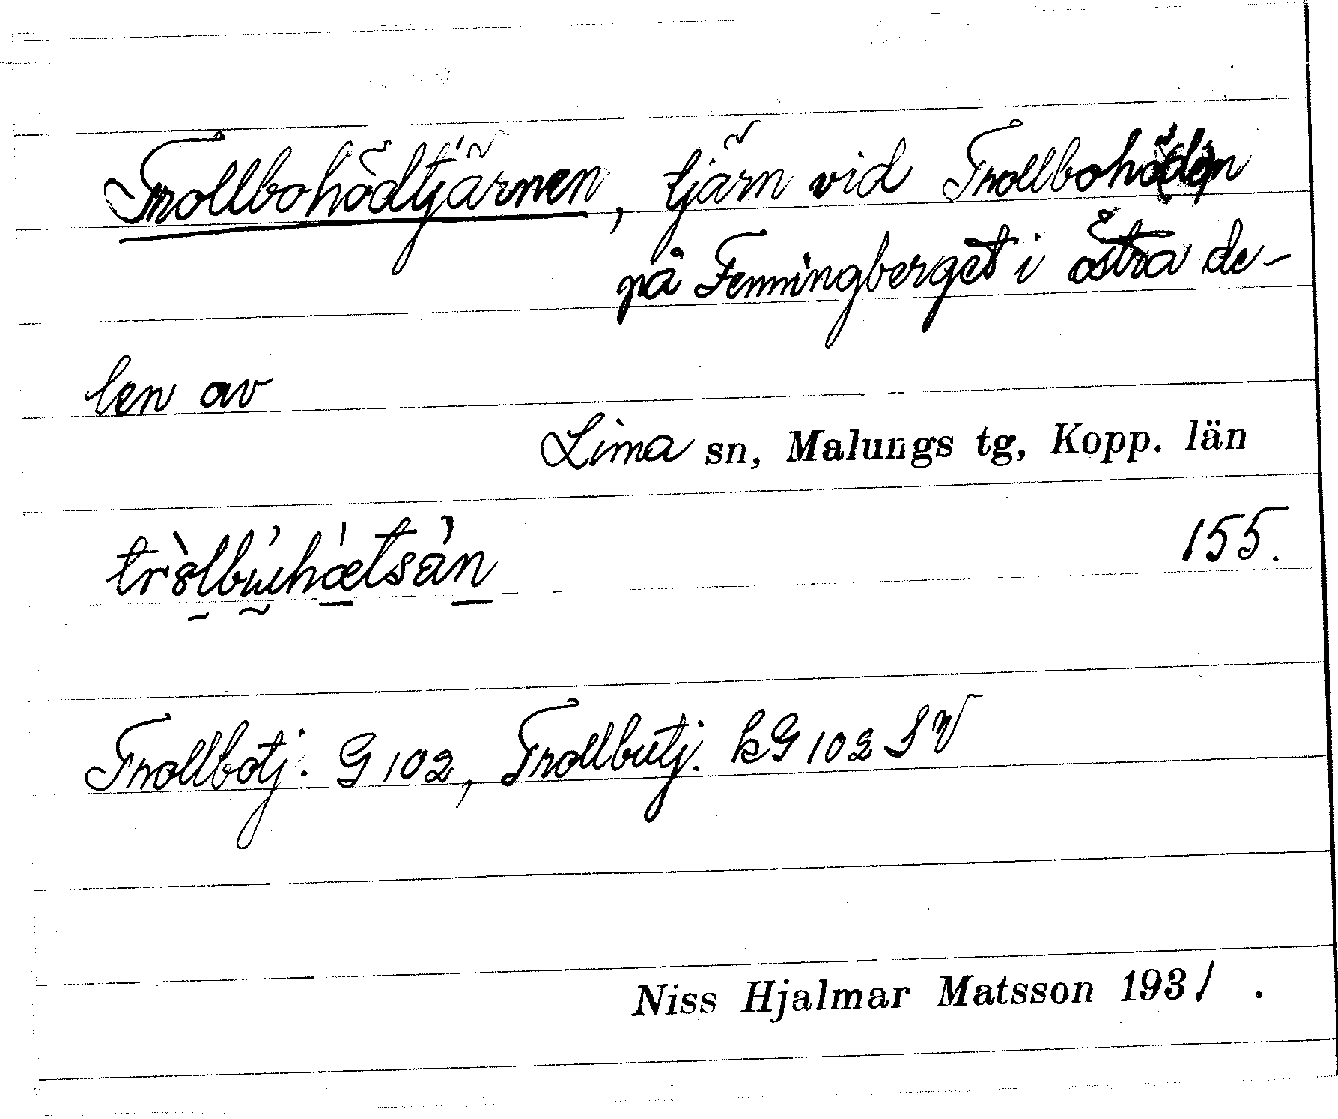 Trollbohödtjärnen, tjärn vid Trollbohö(de)n
på Femmingberget i östra de-
len av
Lima sn, Malungs tg, Kopp. län
155.
Trollbotj. G 102, Trollbutj. kG 102 SV
Niss Hjalmar Matsson 1931.